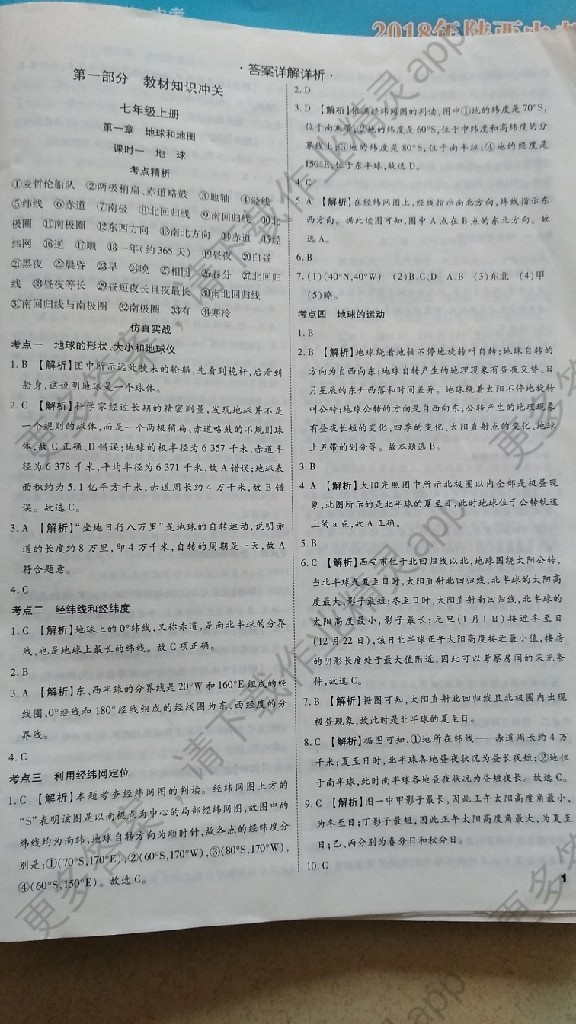 2018年陕西中考
·答案详解详析·
第一部分 教材知识冲关
七年级上册
第一章 地球和地图
课时一 地 球
考点精析
①麦哲伦船队 ②两极稍扁、赤道略鼓 ③地轴 ④经线
⑤纬线 ⑥赤道 ⑦南极 ⑧北回归线 ⑨南回归线 ⑩北
极圈 ⑪南极圈 ⑫东西方向 ⑬南北方向 ⑭赤道 ⑮经
纬网 ⑯逆 ⑰顺 ⑱一年(约365天) ⑲昼夜 ⑳自昼
㉑黑夜 ㉒晨昏 ㉓早 ㉔晚 ㉕相同 ㉖春分 ㉗北回归
线 ㉘昼夜等长 ㉙昼短夜长且夜最长 ㉚南北回归线
㉛南回归线与南极圈 ㉜南极圈 ㉝有 ㉞寒冷
仿真实战
考点一 地球的形状、大小和地球仪
1. B 【解析】图中所示远处驶来的轮船,先看到桅杆,后看到
船身,这说明地球是一个球体。
2. C 【解析】科学家经过长期的精密测量,发现地球并不是
一个规则的球体,而是一个两极稍扁、赤道略鼓的不规则球
体,故C正确,D错误;地球的极半径为6 357千米,赤道半
径为6 378千米,平均半径为6 371千米,故A错误;地球表
面积约为5.1亿平方千米,赤道周长约4万千米,故B错
误。故选C。
3. A 【解析】“坐地日行八万里”是地球的自转运动,说明赤
道的长度约8万里,即4万千米,自转的周期是一天,故A
符合题意。
4. C
考点二 经纬线和经纬度
1. C 【解析】地球上的0°纬线,又称赤道,是南北半球的分界
线,也是地球上最长的纬线。故C项正确。
2. B
3. A 【解析】东、西半球的分界线是20°W和160°E组成的经
线圈,0°经线和180°经线组成的经线圈为东、西经度的分
界线。
4. C
考点三 利用经纬网定位
1. C 【解析】本题考查经纬网图的判读。经纬网图上方的
“S”表明该图是以南极点为中心的局部经纬网图,故图中的
纬线均为南纬,地球自转方向为顺时针,故各点的经纬度分
别是:①(70°S,170°E),②(60°S,170°W),③(80°S,170°W),
④(60°S,150°E)。故选C。
2. D
3. D 【解析】根据经纬网图的判读,图中①地的纬度是70°S,
位于南寒带;②地的纬度是60°S,位于中纬度和高纬度的分
界线上;③地的纬度是80°S,位于南半球;④地的经度是
150°E,位于东半球,故选D。
4. C
5. A 【解析】在经纬网图上,经线指示南北方向,纬线指示东
西方向。据此读图可知,图中A点在B点的东北方向。故
选A。
6. B
7. (1)(40°N,40°W) (2)B、C、D A、B (3)东北 (4)甲
(5)略。
考点四 地球的运动
1. B
2. B 【解析】地球绕着地轴不停地旋转叫自转;地球自转的
方向为自西向东;地球自转产生的地理现象有昼夜交替、日
月星辰的东升西落和时间差异。地球绕着太阳不停地旋转
叫公转;地球公转的方向是自西向东;公转产生的地理现象
有昼夜长短的变化、四季的变化、太阳直射点的变化、地球
上五带的划分等。故本题选B。
3. B
4. A 【解析】太阳光照图中所示北极圈以内全部是极昼现
象,此图所示的是北半球的夏至日,此时地球位于公转轨道
5. B
6. C 【解析】西安市位于北回归线以北,地球围绕太阳公转,
当北半球为夏至日时,太阳直射北回归线,北半球的太阳高
度最大,影子最短;冬至日时,太阳直射南回归线,北半球的
太阳高度最小,影子最长;元旦(1月1日)接近冬至日
(12月22日),该月北半球正午太阳高度接近最小值,楼房
的阴影长度处于最大值附近,因此可以考察房间的采光条
件,故选C。
7. B 【解析】据图可知,太阳直射北回归线且北极圈内出现
极昼现象,故此时是北半球的夏至日。
8. C 【解析】据图可知,①地所在纬线——赤道周长约4万
千米;夏至日时,北半球各地昼夜状况为昼长夜短;②地位
于南半球,此时南半球各地昼夜状况为昼短夜长。故选C。
9. C 【解析】图一中甲影子最长,因此正午太阳高度角最小,
为冬至日;丁影子最短,因此正午太阳高度角最大,为夏至
日;乙、丙分别为春分日和秋分日。
10. C
1
更多答案,请下载作业精灵app